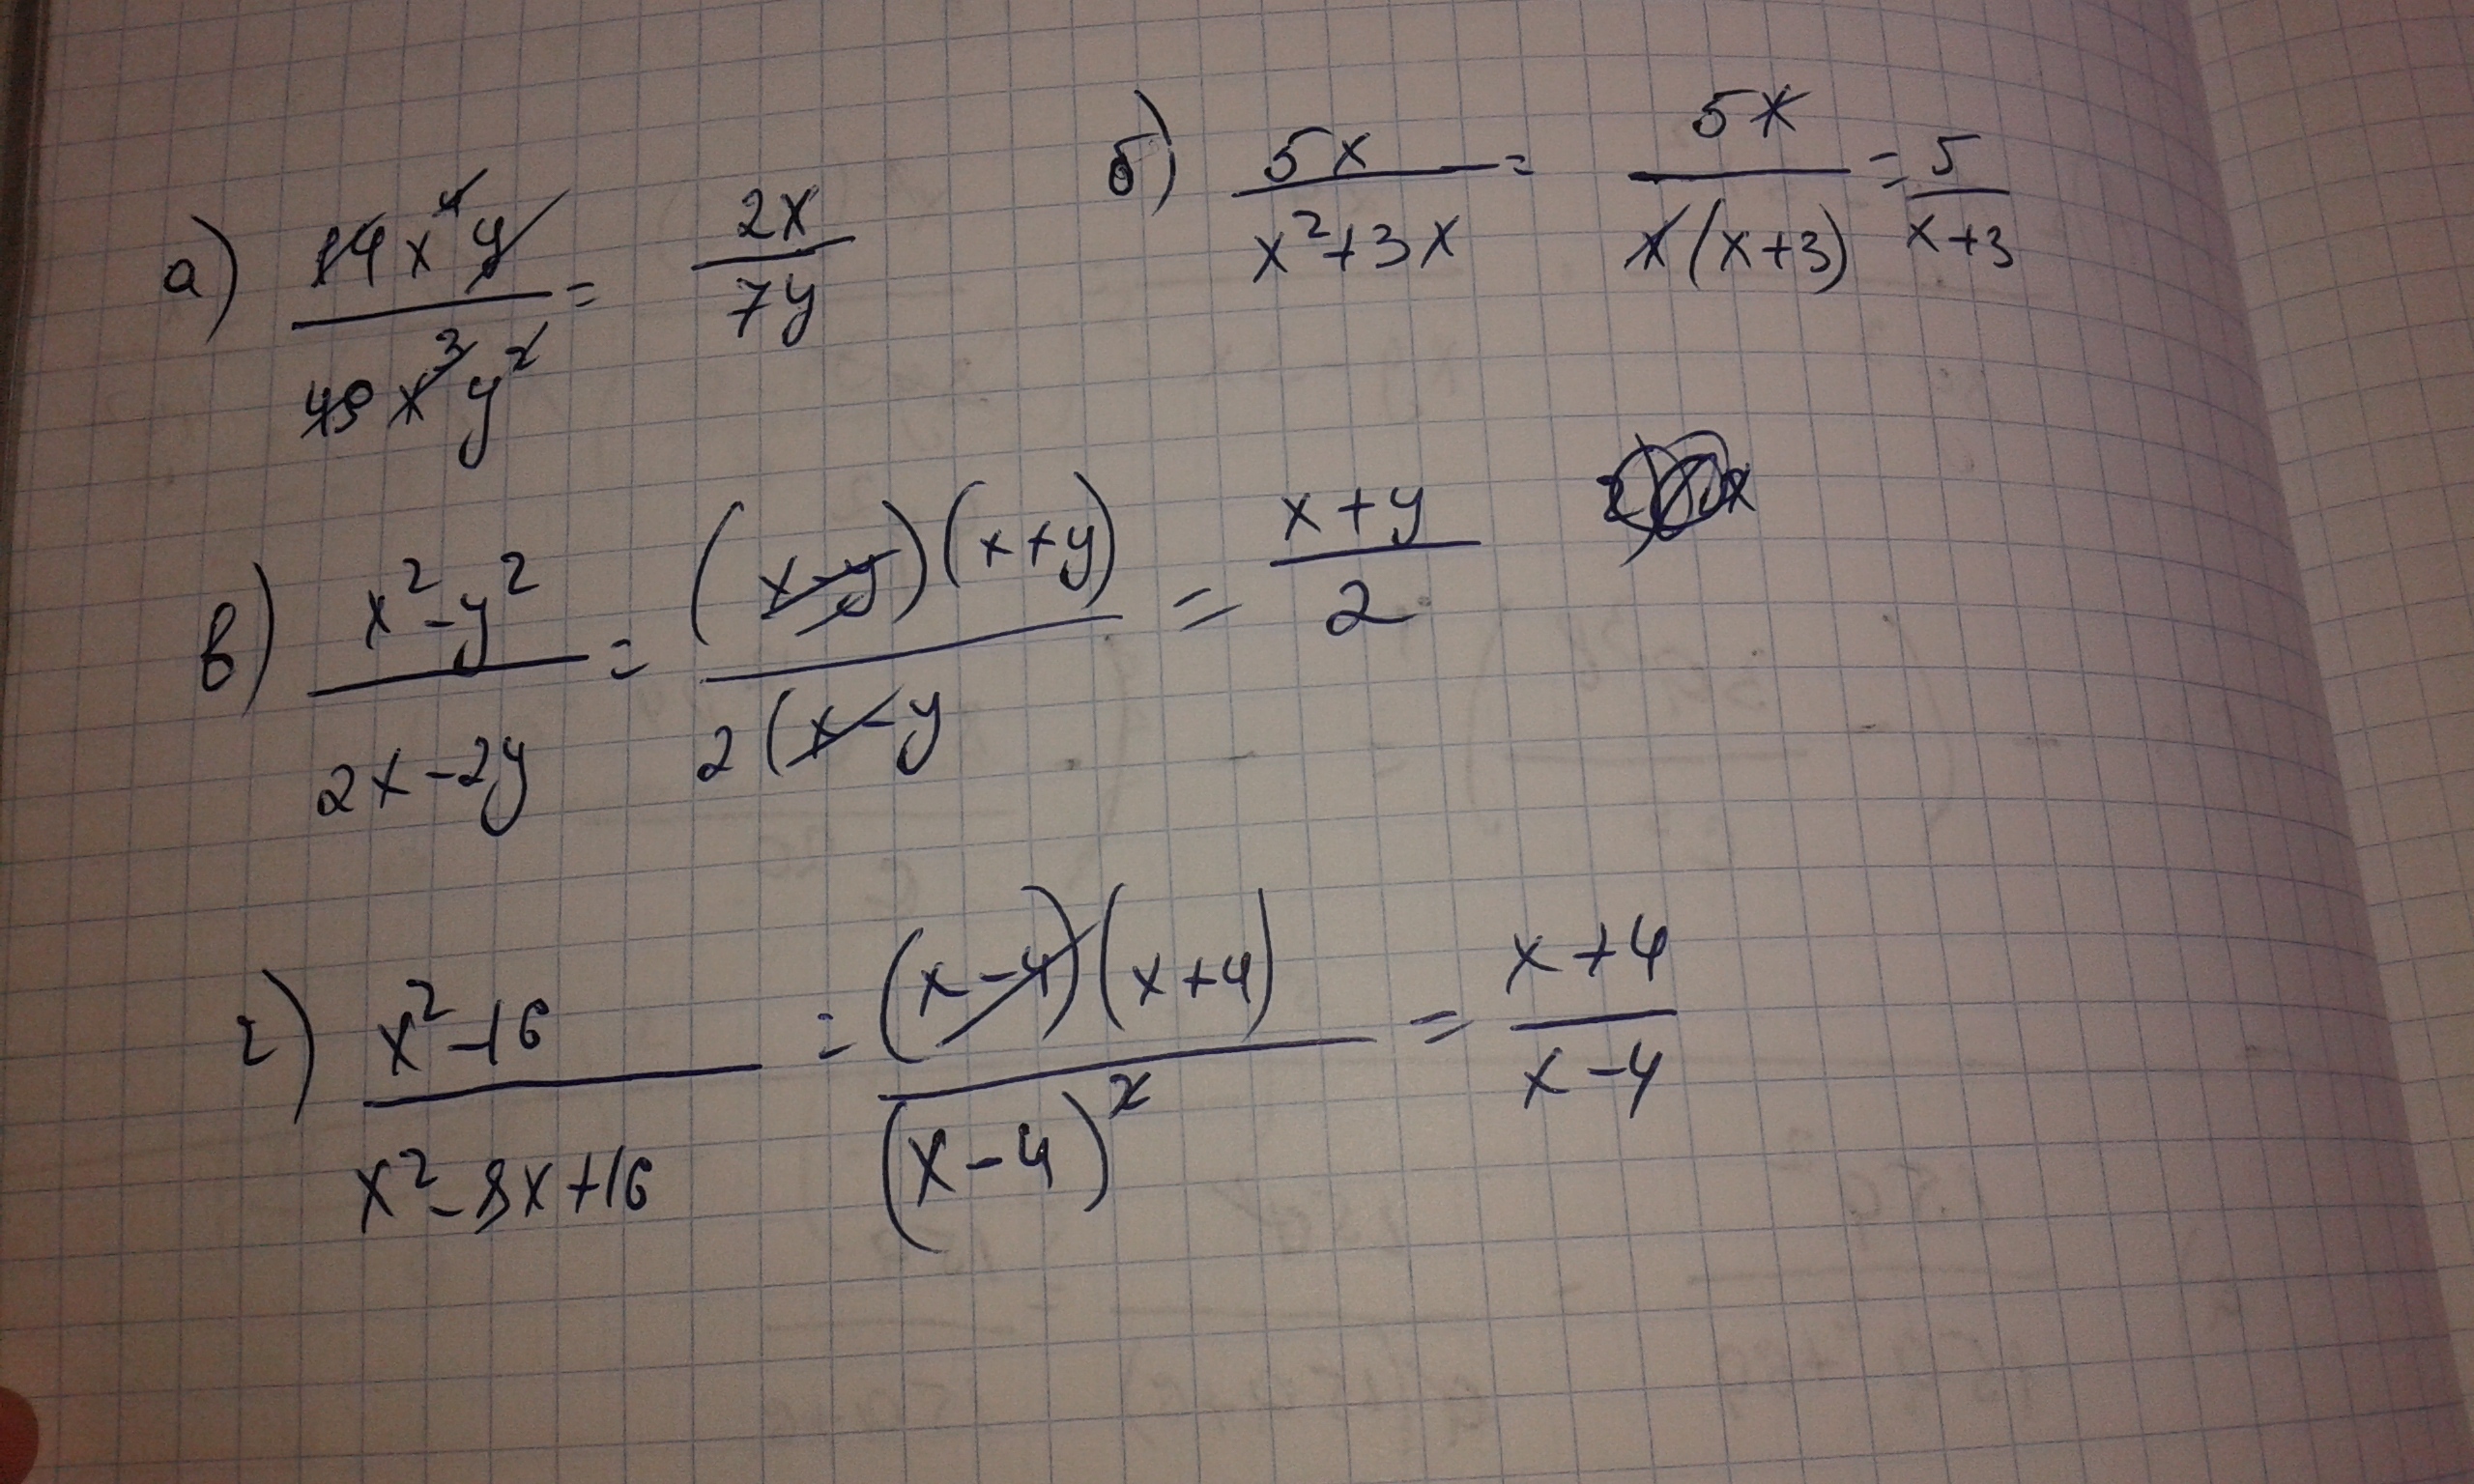 а) 14x⁴y / 49x³y² = 2x / 7y
б) 5x / x²+3x = 5x / x(x+3) = 5 / x+3
в) x²-y² / 2x-2y = (x-y)(x+y) / 2(x-y = x+y / 2
г) x²-16 / x²-8x+16 = (x-4)(x+4) / (x-4)² = x+4 / x-4